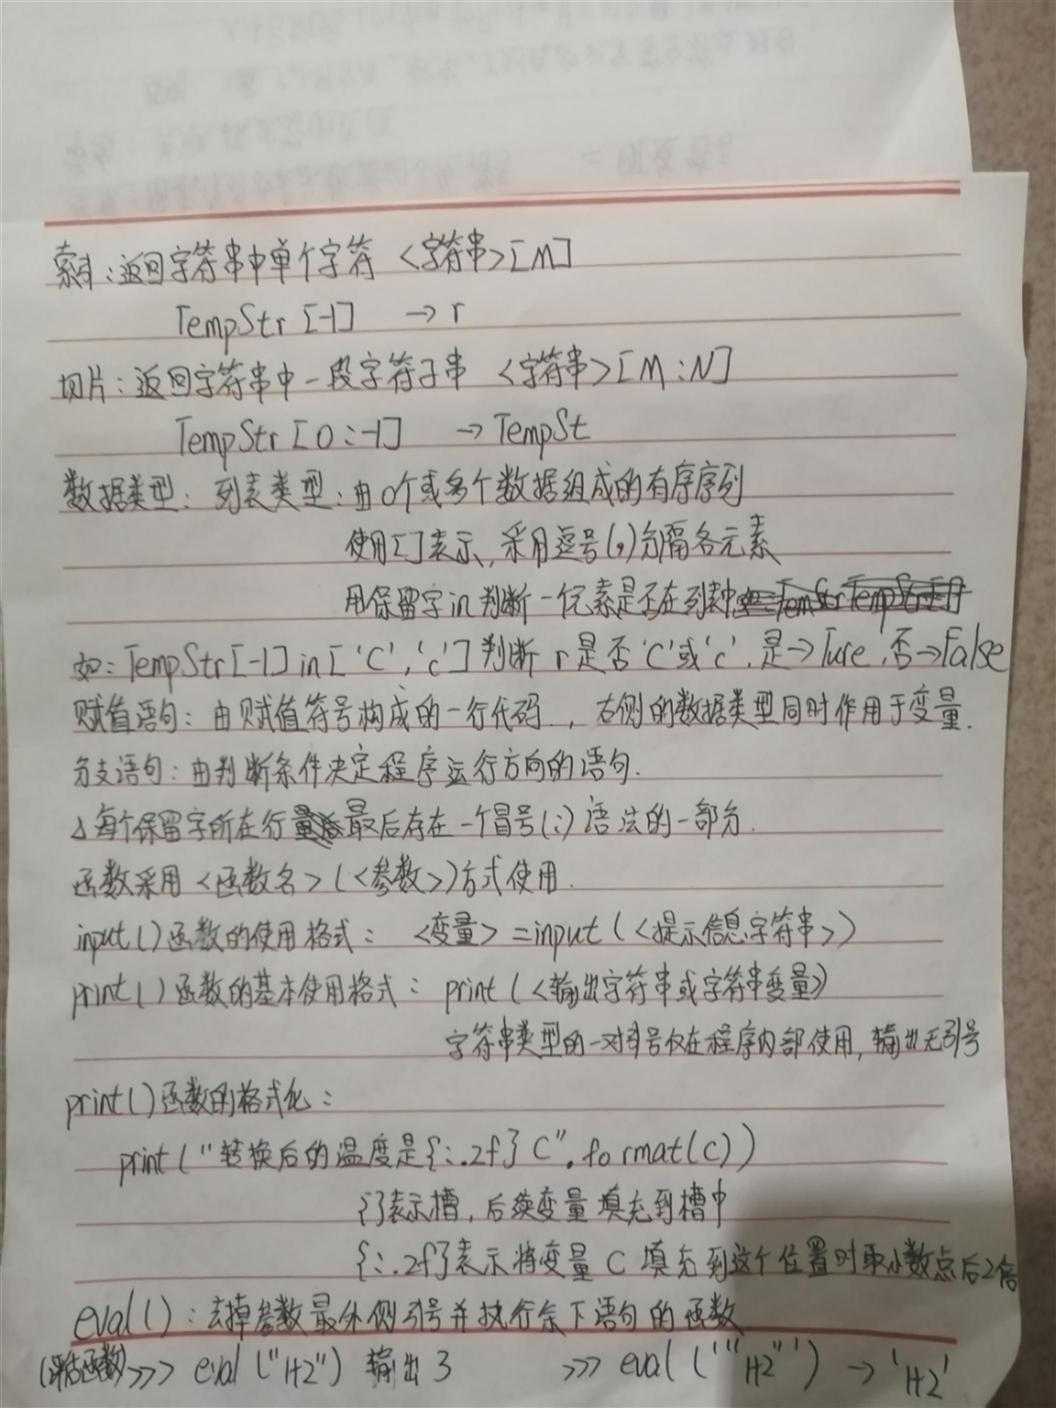 索引:返回字符串中单个字符 <字符串>[M]
TempStr[-1] → r
切片:返回字符串中一段字符子串 <字符串>[M:N]
TempStr[0:-1] → TempSt
数据类型:列表类型:由0个或多个数据组成的有序序列
使用[]表示,采用逗号(,)分隔各元素
用保留字in判断一个元素是否在列表中
如:TempStr[-1] in ['C','c'] 判断 r 是否'C'或'c',是→Ture,否→False
赋值语句:由赋值符号构成的一行代码,右侧的数据类型同时作用于变量.
分支语句:由判断条件决定程序运行方向的语句.
△每个保留字所在行最后存在一个冒号(:)语法的一部分.
函数采用<函数名>(<参数>)方式使用.
input()函数的使用格式: <变量>=input(<提示信息字符串>)
print()函数的基本使用格式: print(<输出字符串或字符串变量>)
字符串类型的一对引号仅在程序内部使用,输出无引号
print()函数的格式化:
print("转换后的温度是{:.2f}C".format(C))
{}表示槽,后续变量填充到槽中
{:.2f}表示将变量C填充到这个位置时取小数点后2位
eval():去掉参数最外侧引号并执行余下语句的函数
(评估函数)>>> eval("1+2") 输出3 >>> eval('"1+2"') → '1+2'